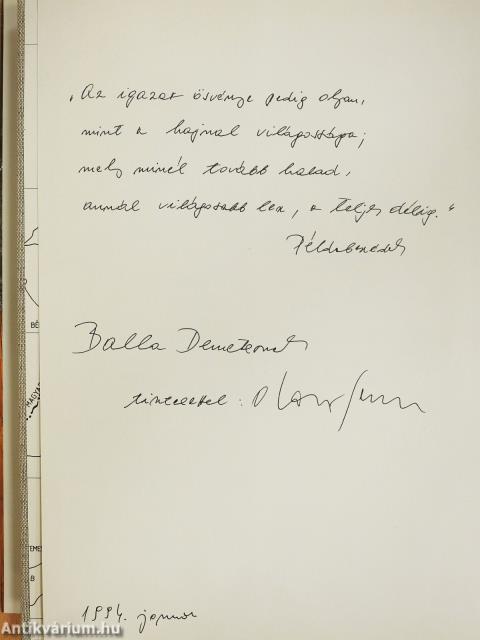 „Az igazak ösvénye pedig olyan,
mint a hajnal világossága;
mely minél tovább halad,
annál világosabb lesz, a teljes délig."
Példabeszédek
Balla Demeternek
tisztelettel:
1994. január
BÉ
MAGYAR
TEME
B
Antikvárium.hu